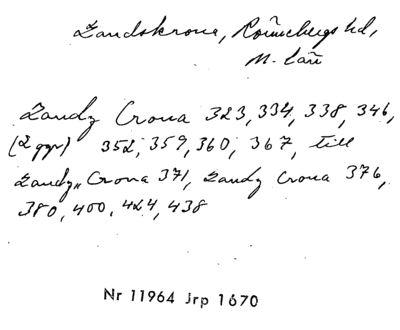 Landskrona, Rönnebergs hd,
M. län
Landz Crona 323, 334, 338, 346,
(2 ggr) 352, 359, 360, 367, till
Landz„ Crona 371, Landz Crona 376,
380, 400, 424, 438
Nr 11964 jrp 1670